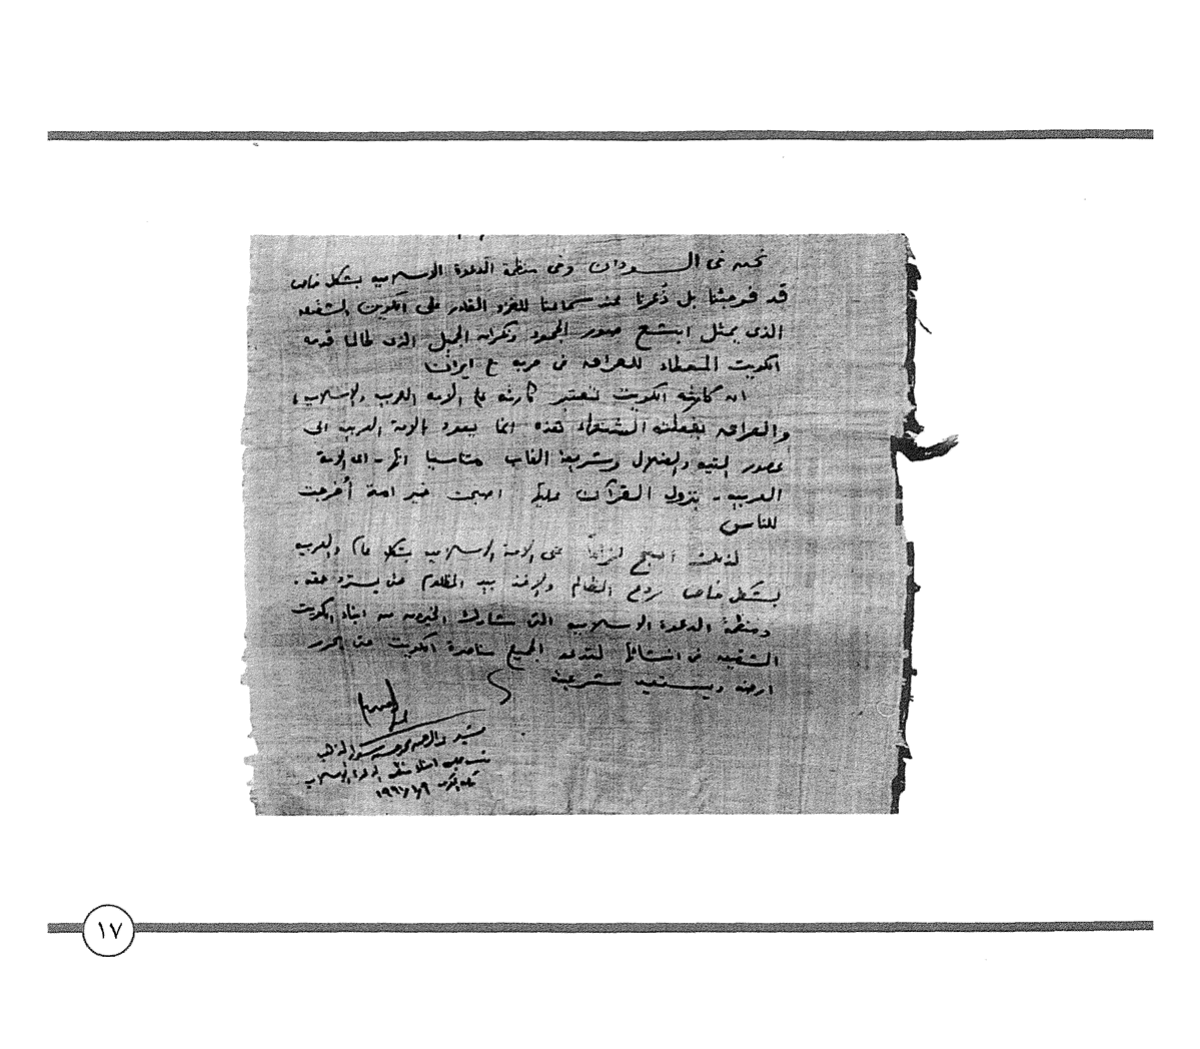 نحن في الســودان وفي منظمة الدعوة الإسلامية بشكل خاص
قد فوجئنا بل ذُعرنا عند سماعنا للغزو الغادر على الكويت الشقيقة
الذي يمثل أبشع صور الجحود ونكران الجميل الذي طالما قدمه
الكويت المعطاء للعراق في حربه مع ايران
ان كارثة الكويت لتعتبر كارثة على الأمة العربية والإسلامية
والعراق بفعلته الشنعاء هذه انما يعود بالأمة العربية الى
عصور التيه والضلال وشريعة الغاب متناسيا انها - اى الأمة
العربية - بنزول القرآن عليها اصبحت خير امة أُخرجت
للناس
لذلك اصبح لزاماً على الأمة الإسلامية بشكل عام والعربية
بشكل خاص ردع الظالم والأخذ بيد المظلوم حتى يسترد حقه .
ومنظمة الدعوة الإسلامية التي شارك الخيرون من ابناء الكويت
الشقيقة في انشائها لتدعو الجميع مناصرة الكويت حتى تحرر
ارضه ويستعيد شرعيته
مشير عبدالرحمن محمد حسن سوار الذهب
منظمة الدعوة الإسلامية
١٩٩١/١/٩
١٧